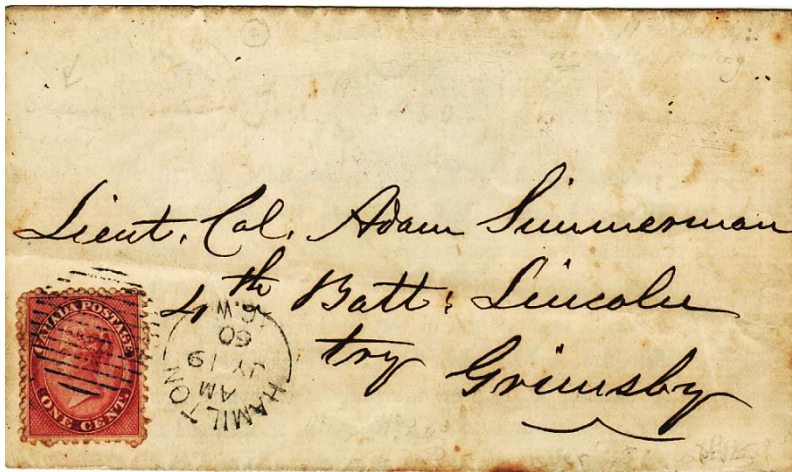 Lieut. Col. Adam Simmerman
4th Batt: Lincoln
try Grimsby
CANADA POSTAGE
ONE CENT.
HAMILTON
AM
JY 19
60
C.W.